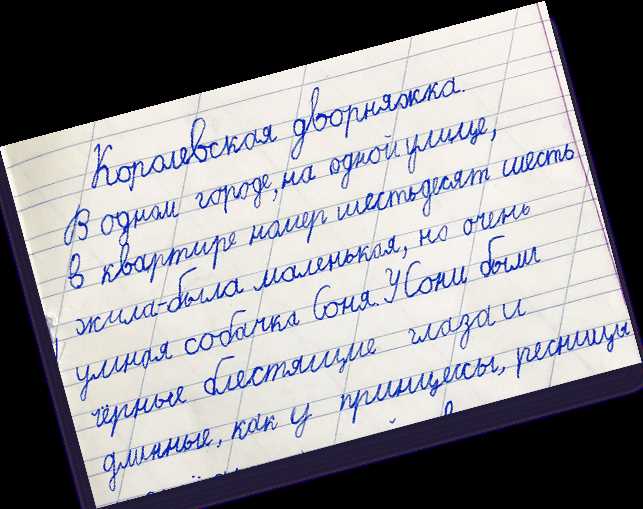 Королевская дворняжка.
В одном городе, на одной улице,
в квартире номер шестьдесят шесть
жила-была маленькая, но очень
умная собачка Соня. У Сони были
чёрные блестящие глаза и
длинные, как у принцессы, ресницы